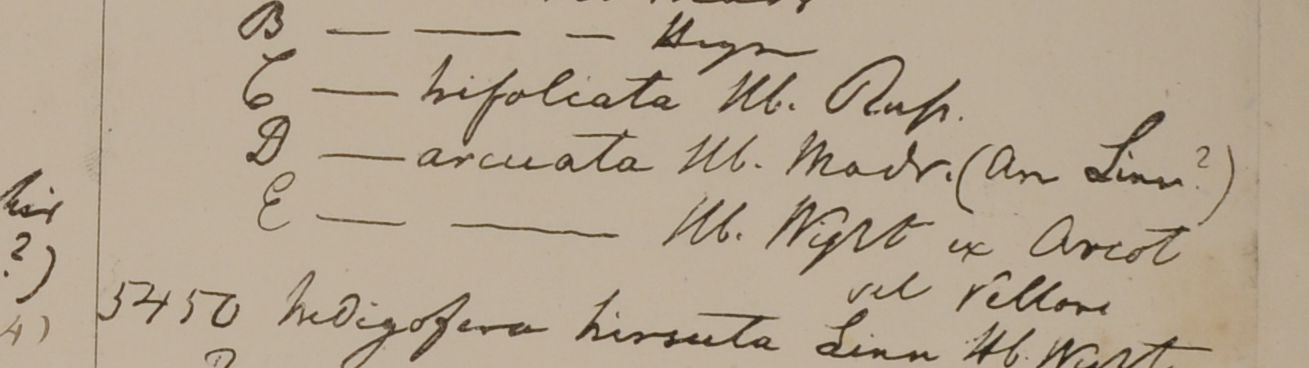 B — — — Heyn
C — trifoliata Hb. Russ.
D — arcuata Hb. Madr. (an Linn?)
E — —— Hb. Wight ex Arcot
vel Vellore
5450 Indigofera hirsuta Linn Hb. Wight
?)
4)